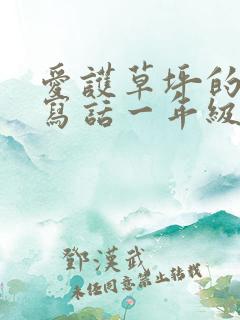 愛護草坪的
寫話一年級
鄧漢武
未經同意禁止轉載